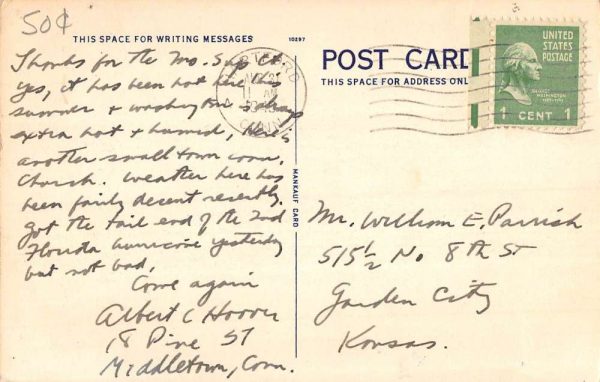 50¢
THIS SPACE FOR WRITING MESSAGES
10297
POST CARD
THIS SPACE FOR ADDRESS ONL
UNITED
STATES
POSTAGE
1 CENT 1
CONN
MANKAUF CARD
Thanks for the Mo. Sup Ct.
Yes, it has been hot here this
summer + washington is always
extra hot + humid, Here's
another small town conn.
Church. Weather here has
been fairly decent recently.
Got the tail end of the 2nd
Florida hurricane yesterday
but not bad,
Come again
Albert C Hoover
18 Pine ST
Middletown, Conn.
Mr. William E. Parrish
515½ No. 8th St
Garden City
Kansas.